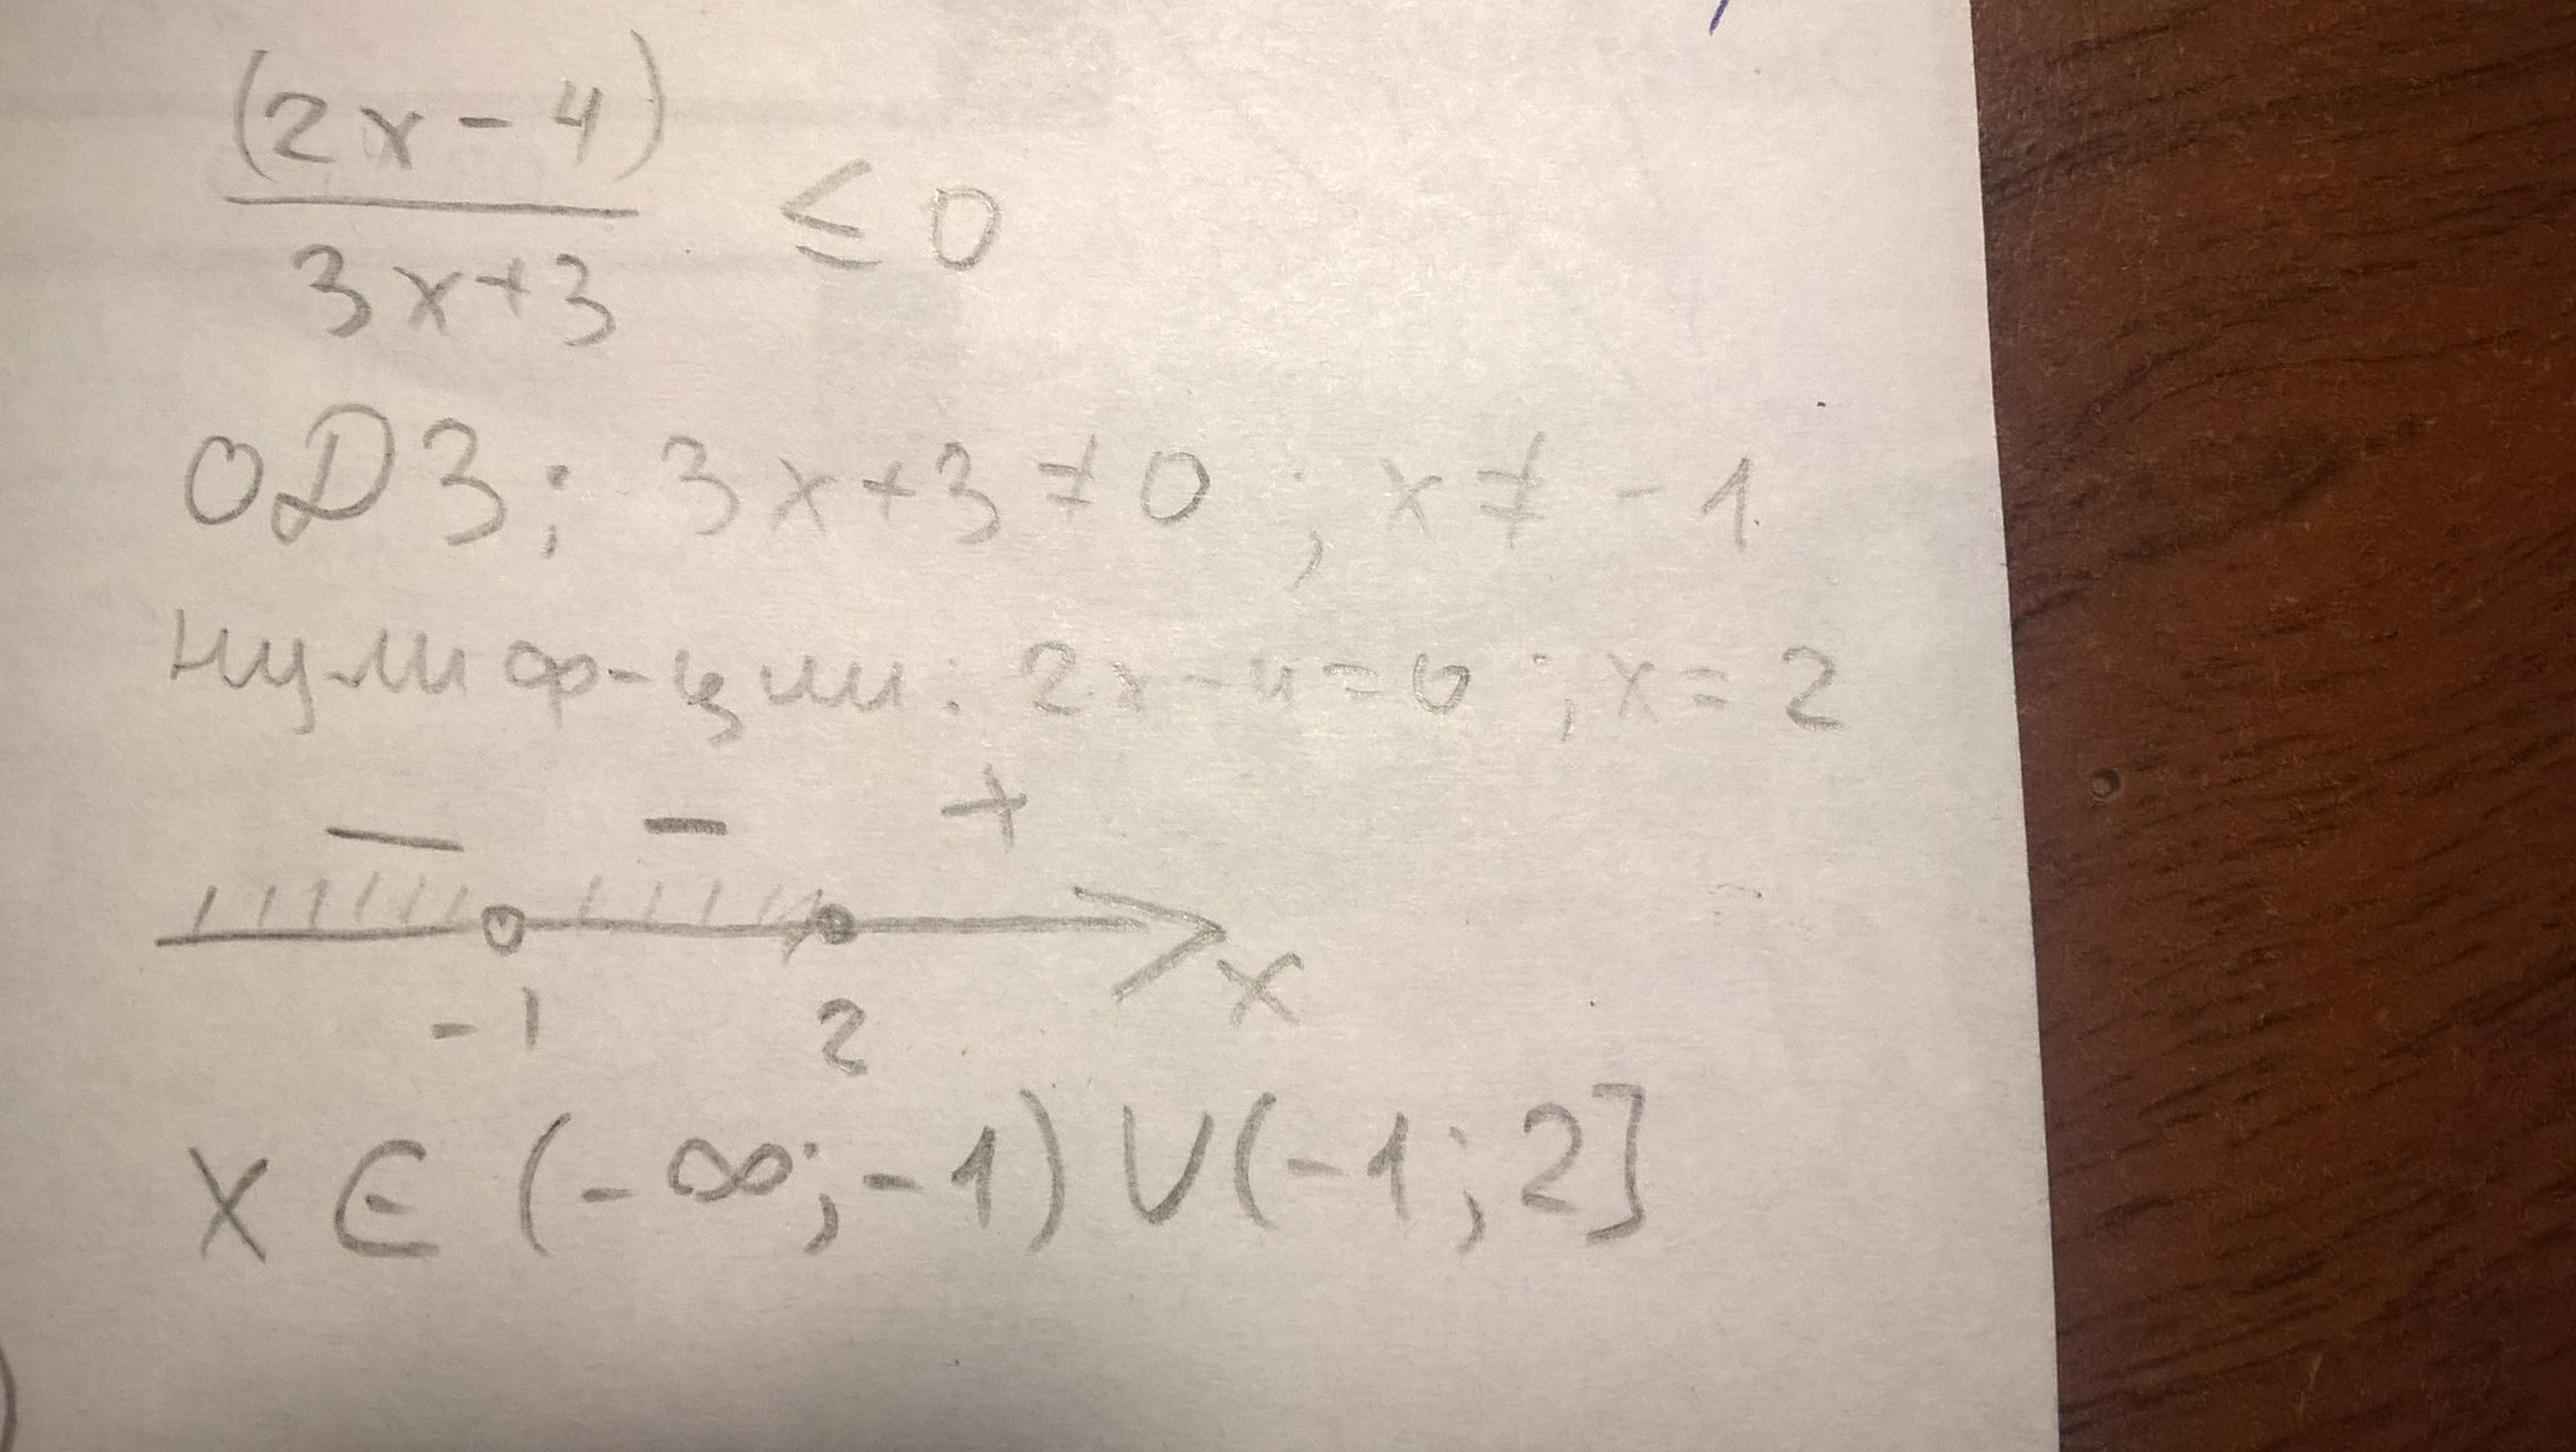 (2x-4)
3x+3
≤ 0
ОДЗ; 3x+3≠0 ; x≠ -1
нули ф-ции: 2x-4=0 ; x=2
— - +
-1 2 x
x ∈ (-∞;-1) ∪ (-1;2]